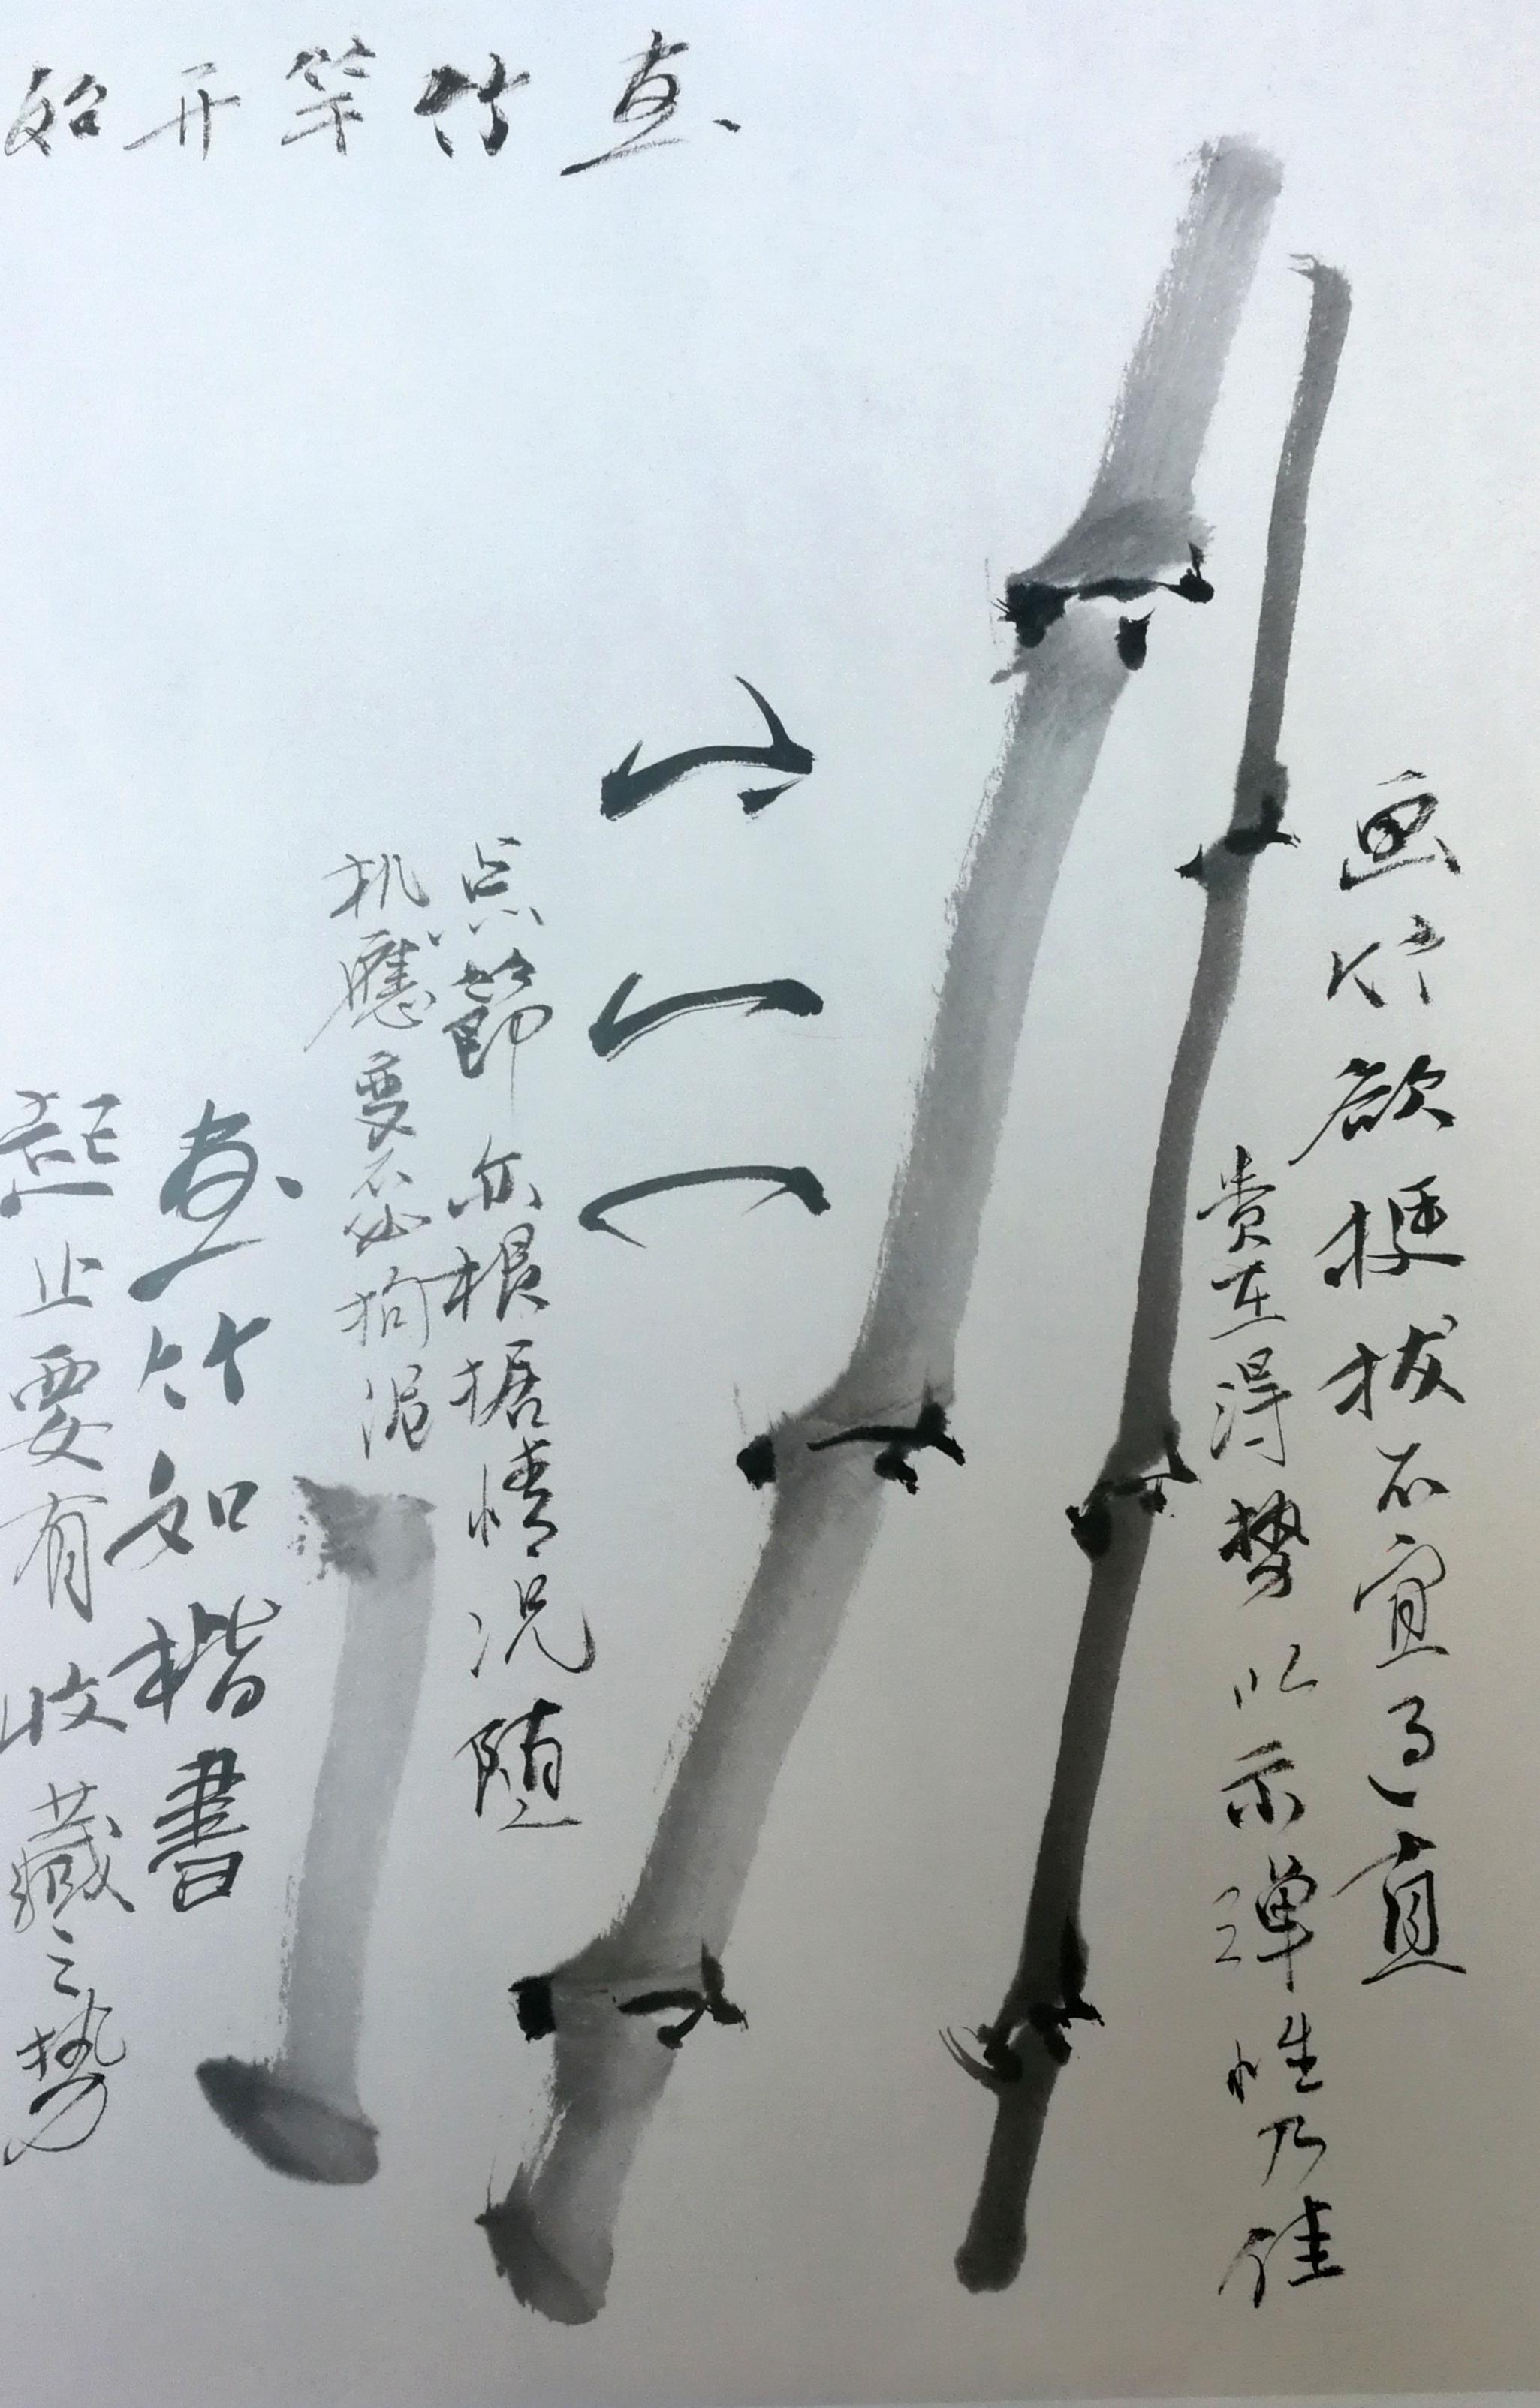 画竹竿开始
画竹欲挺拔不宜过直
贵在得势以示弹性乃佳
点節亦根据情况随
机應变不必拘泥
画竹如楷書
起止要有收藏之势